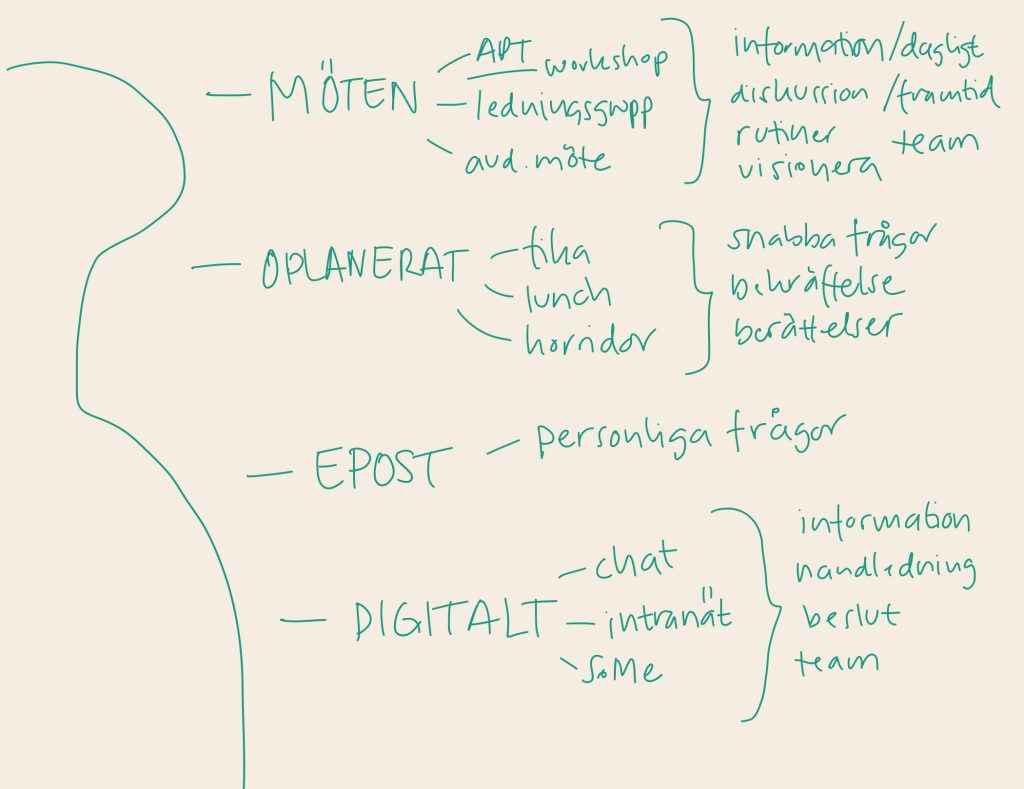 MÖTEN
APT workshop
ledningsgrupp
avd. möte
information/dagligt
diskussion /framtid
rutiner team
visionera
OPLANERAT
fika
lunch
korridor
snabba frågor
bekräftelse
berättelser
EPOST
personliga frågor
DIGITALT
chat
intranät
SoMe
information
handledning
beslut
team